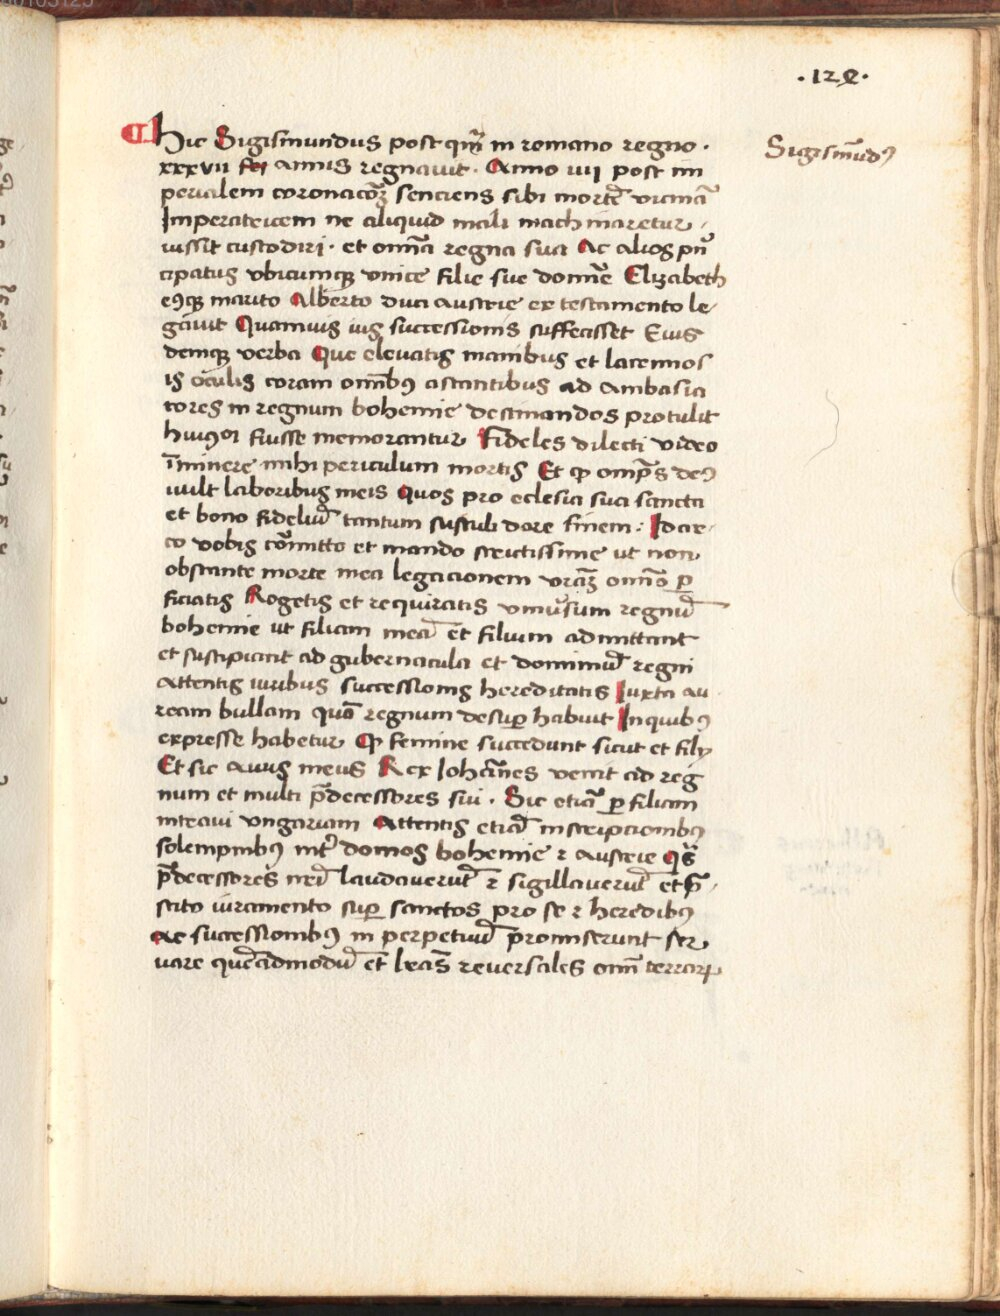 .129.
Sigismūdꝰ
¶ Hic Sigismundus post qm̄ in romano regno ·
xxxvii fe annis regnauit · Anno iiij post im
perialem coronacōꝫ senciens sibi mortē vicinā
Imperatricem ne aliquid mali machinaretur
iussit custodiri · et omīa regna sua Ac alios pn̄
cipatus vbicumqꝫ vnice filie sue domīe Elizabeth
eꝰqꝫ marito Alberto duci austrie ex testamento le
gauit Quamuis ius successionis suffecisset Eius
demqꝫ verba Que eleuatis manibus et lacrimos
is oculis coram omībꝰ astantibus ad ambasia
tores in regnum bohemie destinandos protulit
huiꝰmōi fuisse memorantur Fideles dilecti video
īminere mihi periculum mortis Et ꝙ omp̄s deꝰ
wult laboribus meis Quos pro eclesia sua sancta
et bono fideliū tantum sustuli dare finem : Idcir
co vobis cōmitto et mando strictissime ut non
obstante morte mea legacionem vr̄aꝫ omīo ꝑ
ficiatis Rogetis et requiratis vniuͥsum regnū
bohemie ut filiam meā et filium admittant
et suscipiant ad gubernacula et dominiū regni
Attentis iuribus successionis hereditatis Iuxta au
ream bullam quā regnum desuꝑ habuit In quibꝰ
expresse habetur Ꝙ femine succedunt sicut et filij
Et sic Auus meus Rex Iohānes venit ad reg
num et multi p̄decessores sui · Sic etiā ꝑ filiam
intraui vngariam Attentis etiā inscripcionibꝰ
solempnibꝰ int̄ domos bohemie ⁊ Austrie Qs̄
p̄decessores nr̄i laudauerūt ⁊ sigillauerūt et p̄
stito iuramento suꝑ sanctos pro se ⁊ heredibꝰ
Ac successionibꝰ in perpetuū promiserunt ser
uare quēadmodū et lr̄as reuersales om̄ terrarꝫ